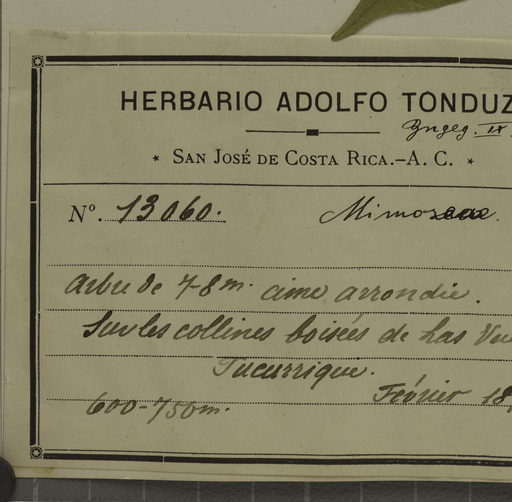 HERBARIO ADOLFO TONDUZ
Zngeg. IX.
* SAN JOSÉ DE COSTA RICA.–A. C. *
Nº. 13060. Mimoseae.
arbre de 7-8m. cime arrondie.
Sur les collines boisées de Las Vu
Tucurrique.
Février 18
600-750m.